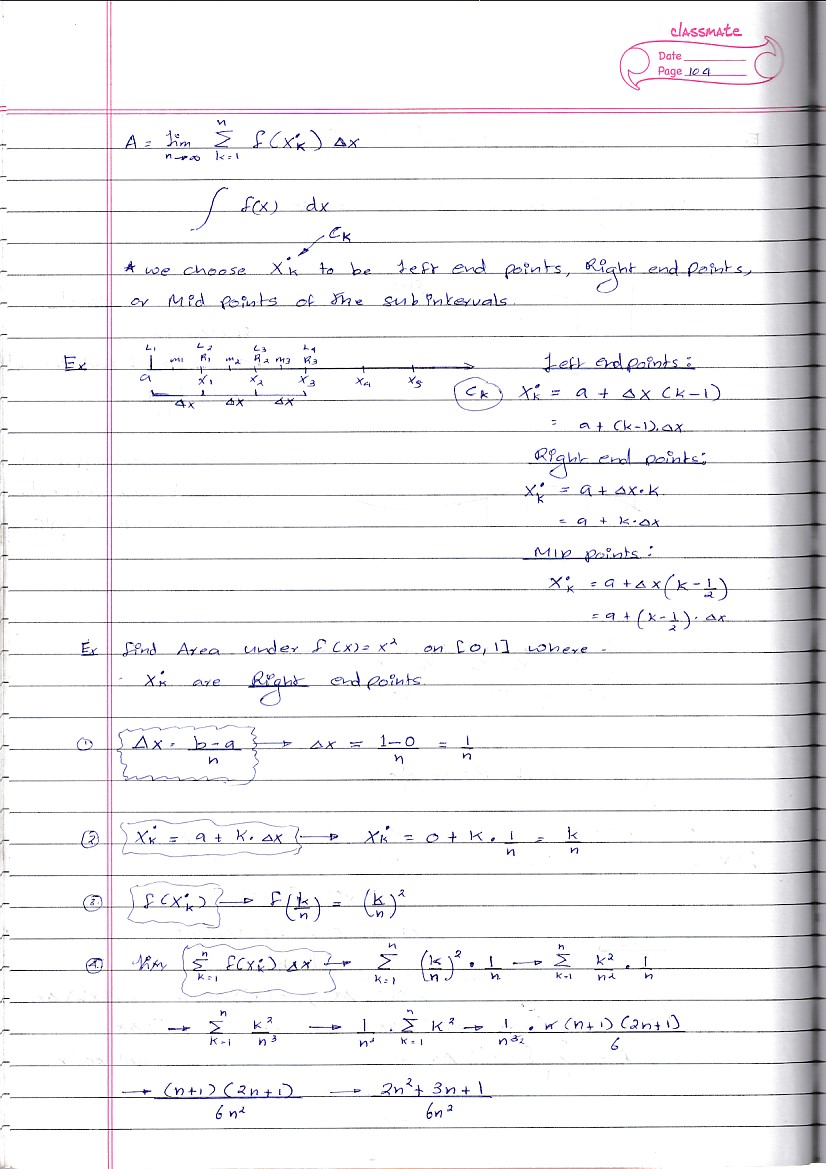 classmate
Date
Page 109
A = lim n→∞ n Σ k=1 f(x*k) Δx
∫ f(x) dx
Ck
* we choose x*k to be left end points, Right end points,
or Mid points of the subintervals.
Ex
L1 L2 L3 L4
m1 R1 m2 R2 m3 R3
a x1 x2 x3 x4 x5
Δx Δx Δx
Left endpoints:
Ck x*k = a + Δx (k-1)
= a + (k-1).Δx
Right end points:
x*k = a + Δx•k
= a + k•Δx
Mid points:
x*k = a + Δx(k - 1/2)
= a + (k - 1/2)• Δx
Ex find Area under f(x)= x² on [0,1] where -
x*k are Right endpoints.
① Δx = b-a/n → Δx = 1-0/n = 1/n
② x*k = a + k• Δx → x*k = 0 + k • 1/n = k/n
③ f(x*k) → f(k/n) = (k/n)²
④ lim n Σ k=1 f(x*k) Δx → n Σ k=1 (k/n)² • 1/n → n Σ k=1 k²/n² • 1/n
→ n Σ k=1 k²/n³ → 1/n³ • n Σ k=1 k² → 1/n³² • n(n+1)(2n+1)/6
→ (n+1)(2n+1)/6n² → 2n² + 3n + 1/6n²